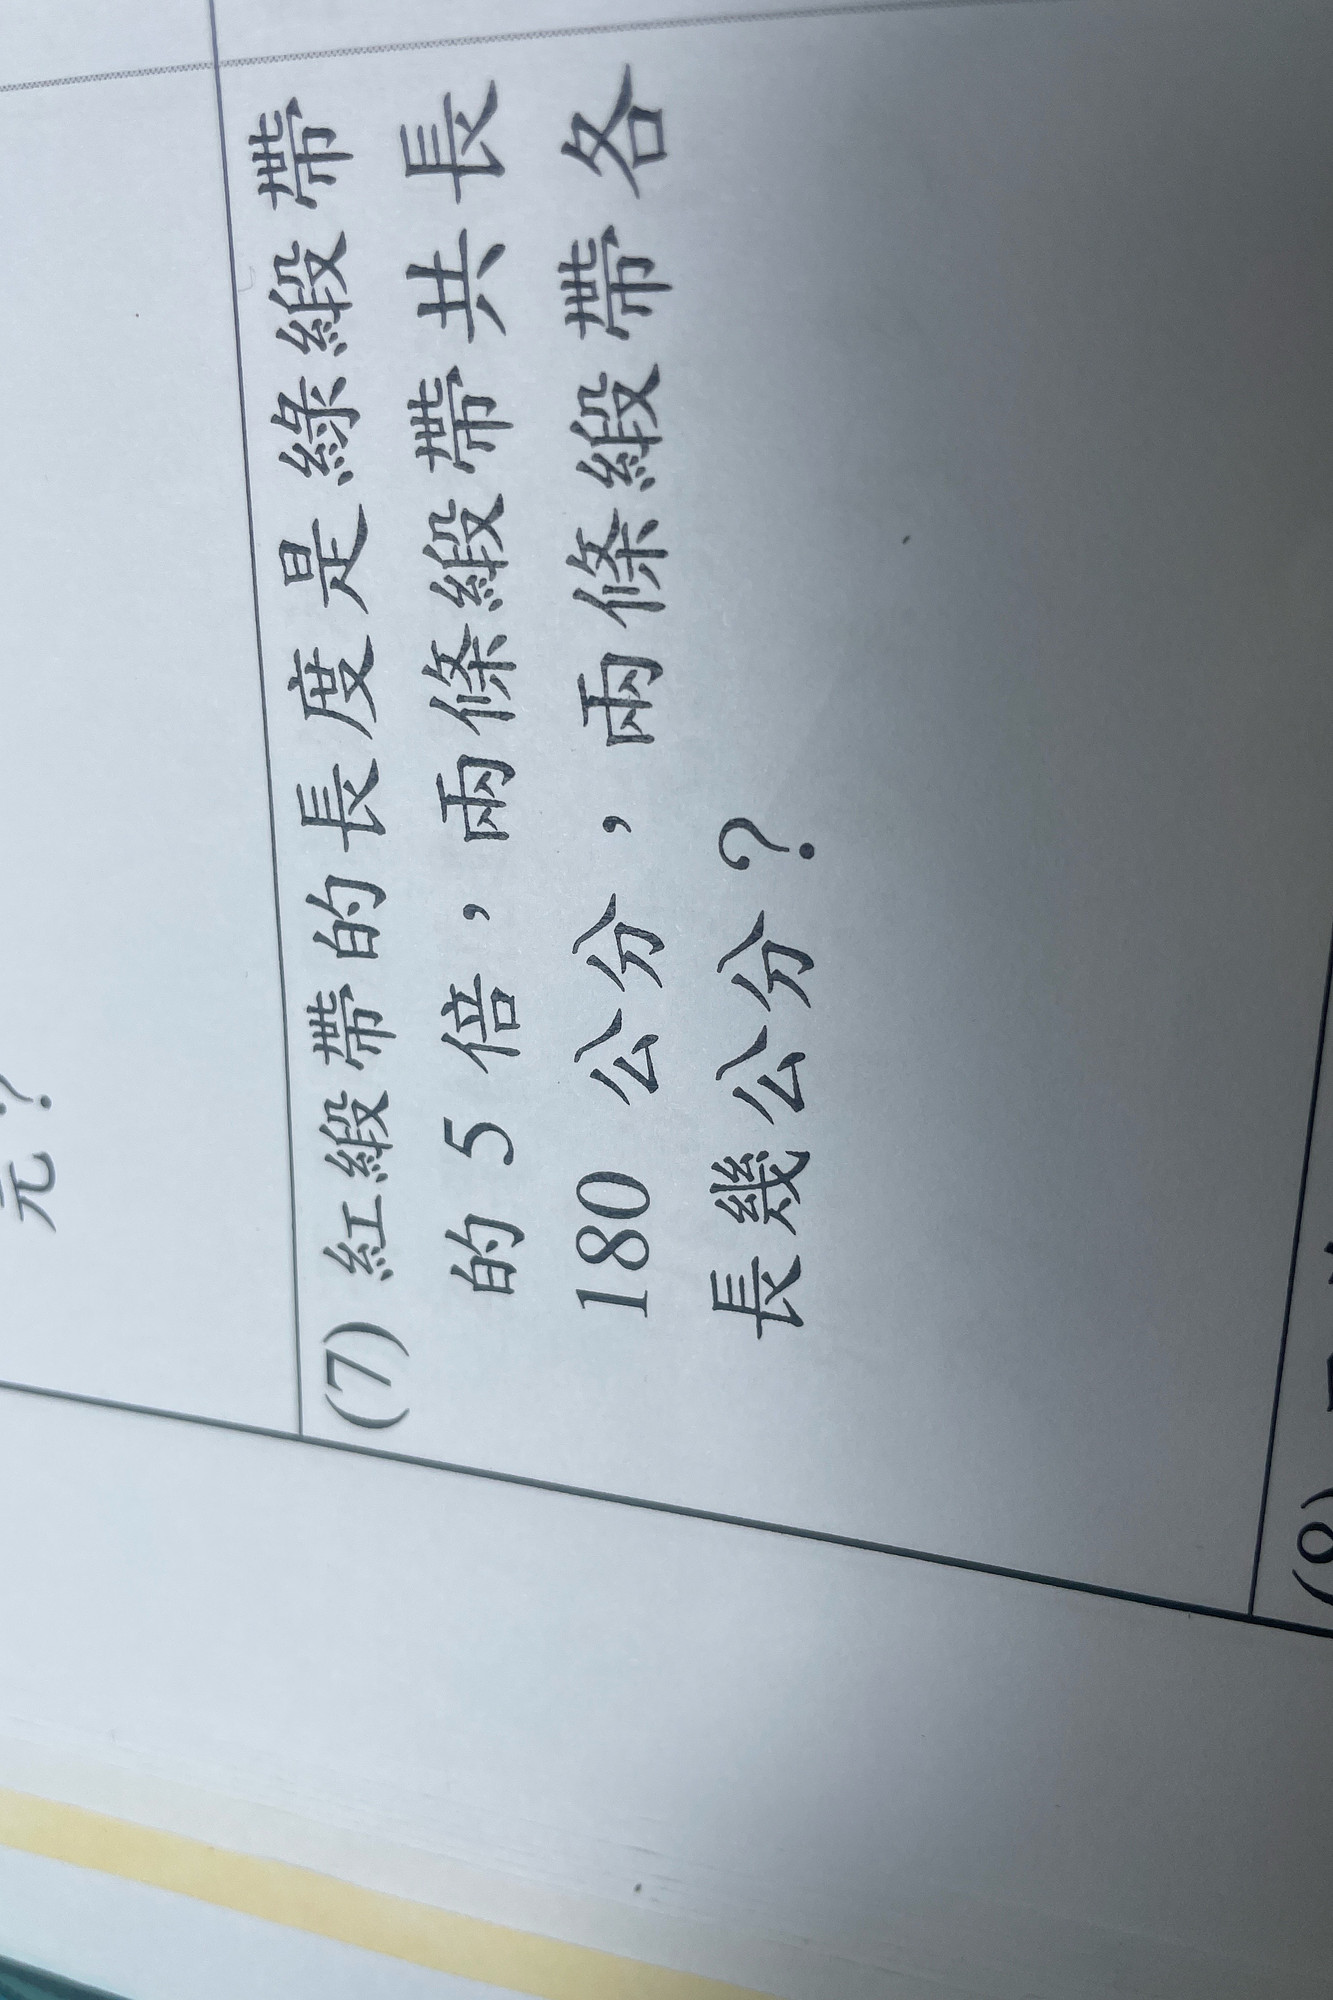 元?
(7) 紅緞帶的長度是綠緞帶
的 5 倍，兩條緞帶共長
180 公分，兩條緞帶各
長幾公分？